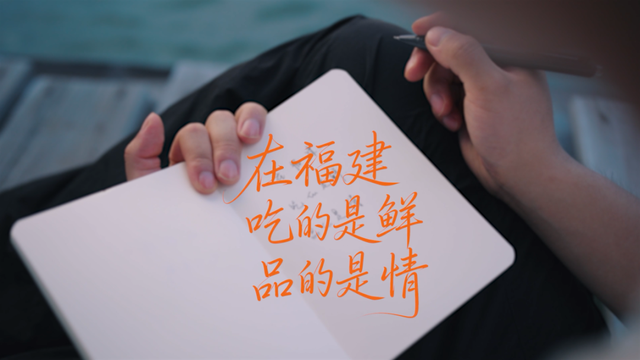 在福建
吃的是鲜
品的是情